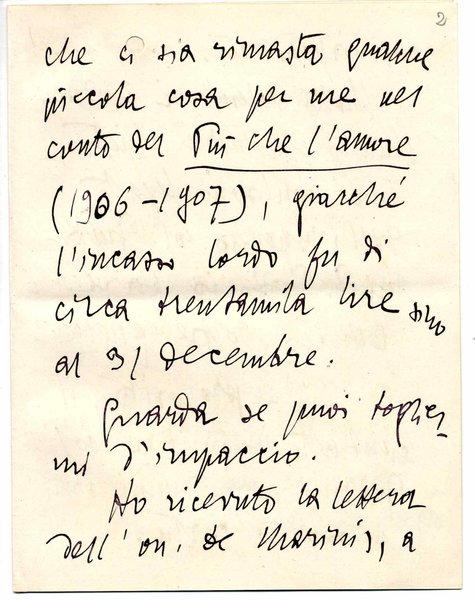 2
che ci sia rimasta qualche
piccola cosa per me nel
conto del Più che l'amore
(1906-1907), giacché
l'incasso lordo fu di
circa trentamila lire sino
al 31 decembre.
Guarda se puoi toglier-
mi d'impaccio.
Ho ricevuto la lettera
dell'on. de Marinis, a